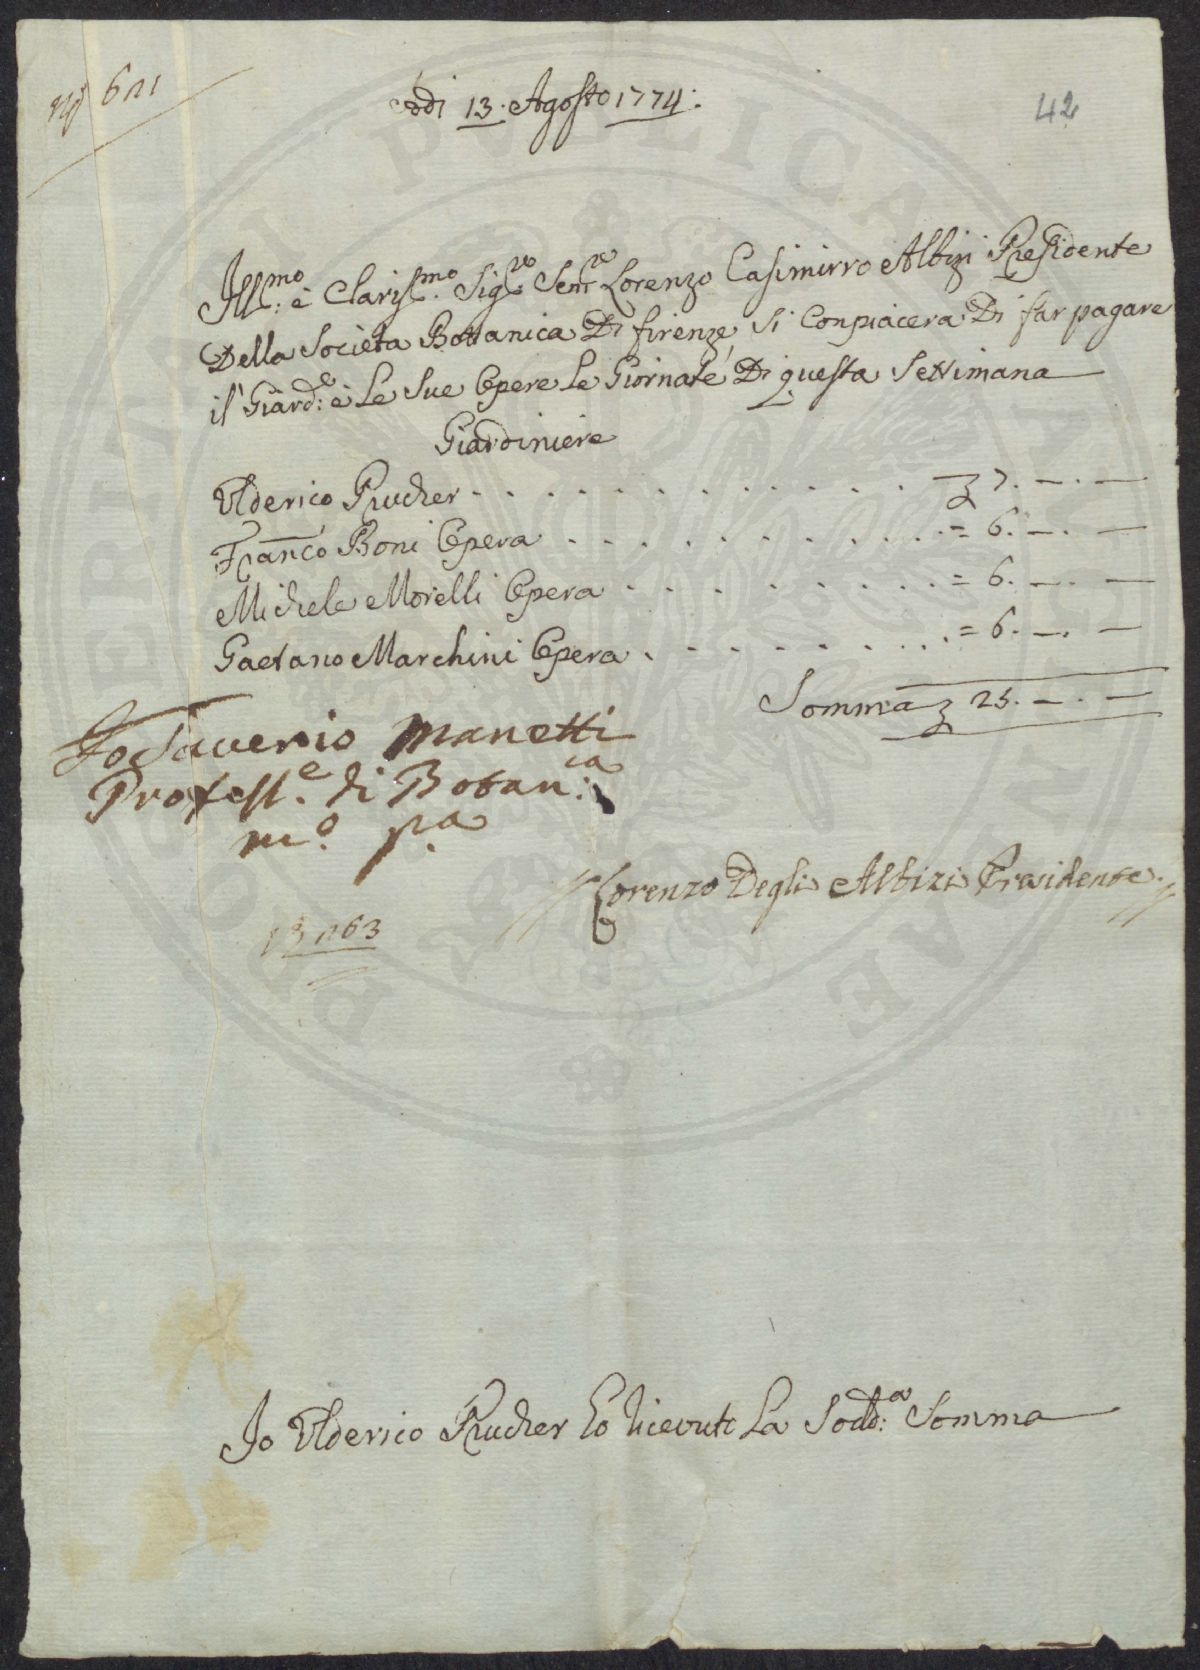 Adi 13. Agosto 1774:
42
Ill:mo è Claris:mo Sigre Senre Lorenzo Casimirro Albizi Presidente
Della Società Bottanica Di firenze, Si Conpiacera Di far pagare
il Giard:e è Le Sue Opere Le Giornate Di questa Settimana
Giardiniere
Ulderico Prucher . . . . . . . . . . . . 7. — . —
Franco Boni Opera . . . . . . . . . . = 6. — . —
Michele Morelli Opera . . . . . . . . . = 6. — . —
Gaetano Marchini Opera . . . . . . . . = 6. — . —
Somma 25. — . —
Io Saverio Manetti
Profess.e di Botan:ca
mo. pa.
// Lorenzo Degli Albizi Presidente. //
Io Ulderico Prucher ho ricevuto La Sodd:a Somma